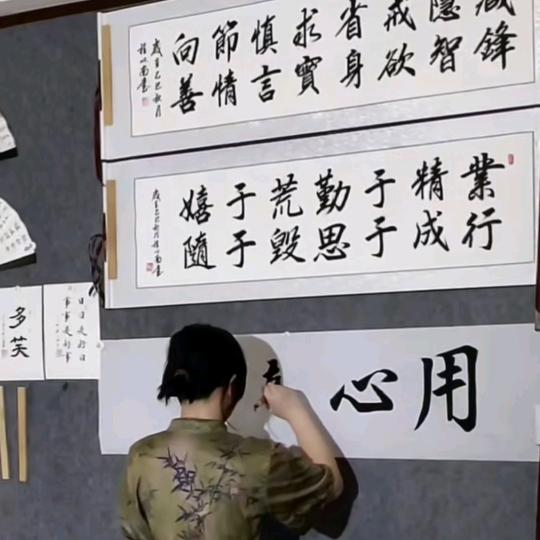 藏鋒
隱智
戒欲
省身
求實
慎言
節情
向善
歲在乙巳秋月
業精于勤荒于嬉
行成于思毀于隨
歲在乙巳秋月
用心
日日是好日
事事是好事
多笑